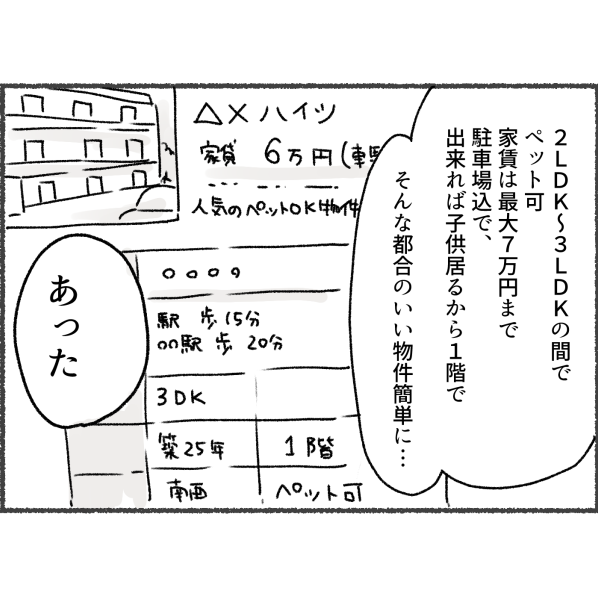 ２ＬＤＫ〜３ＬＤＫの間で
ペット可
家賃は最大７万円まで
駐車場込で、
出来れば子供居るから１階で
そんな都合のいい物件簡単に…
△×ハイツ
家賃 6万円(車
人気のペットOK物件
○○○○
駅 歩15分
○○駅 歩 20分
3DK
築25年 1階
南西 ペット可
あった